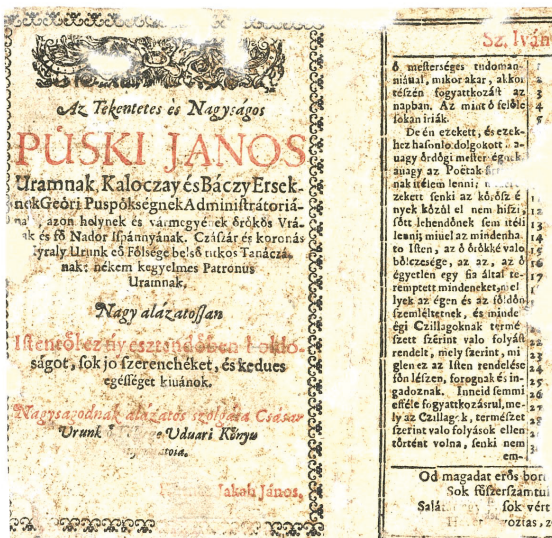 Az Tekentetes és Nagyságos
PÜSKI JANOS
Uramnak, Kaloczay és Báczy Ersek-
nek Geőri Puspőkségnek Administrátoriá-
azon helynek és vármegyének őrőkős Vrá-
ak és fő Nador Ispánnyának. Császár és koronás
Urunk eő Főlsége belső titkos Tanácza
nak: nékem kegyelmes Patronus
Uramnak,
Nagy alázatossan
Istentől ez uy esztendőben boldo-
ságot, sok jó szerenchéket, és kedues
egésséget kiuánok.
Nagysagodnak alázatos szolgáia Császár
Urunk Uduari Kőnyw
Jakab János,
Sz. Iván
ő mesterséges tudoman-
niáual, mikor akar, akkor
tészén fogyattkozást az
napban. Az mint ő felőle
sokan iriák.
De én ezekett, és ezek-
hez hasonlo dolgokott a-
uagy őrdőgi mester
auagy az Poëtak
nak itélem lenni;
zekett senki az kőzősz é
nyek kőzűl el nem hiszi,
sőtt lehendőnek sem itéli
lenni; miuel az mindenha-
to Isten, az ő őrőkké valo
bőlczesége, az az, az ő
égyetlen egy fia által te-
remptett mindeneket,
lyek az égen és az főldőn
szemléltetnek, és minde
égi Czillagoknak termé
szett szérint valo folyást
rendelt, mely szerint, mi
glen ez az Isten rendelése
főn lészen, forognak és in-
gadoznak. Inneid semmi
efféle fogyattkozásrul, ne-
ly az természet
szerint valo folyások ellen
tőrtént volna, senki nem
em-
1
2
3
4
5
Od magadat erős bor
Sok fűszerszámtul
Salá sok vért